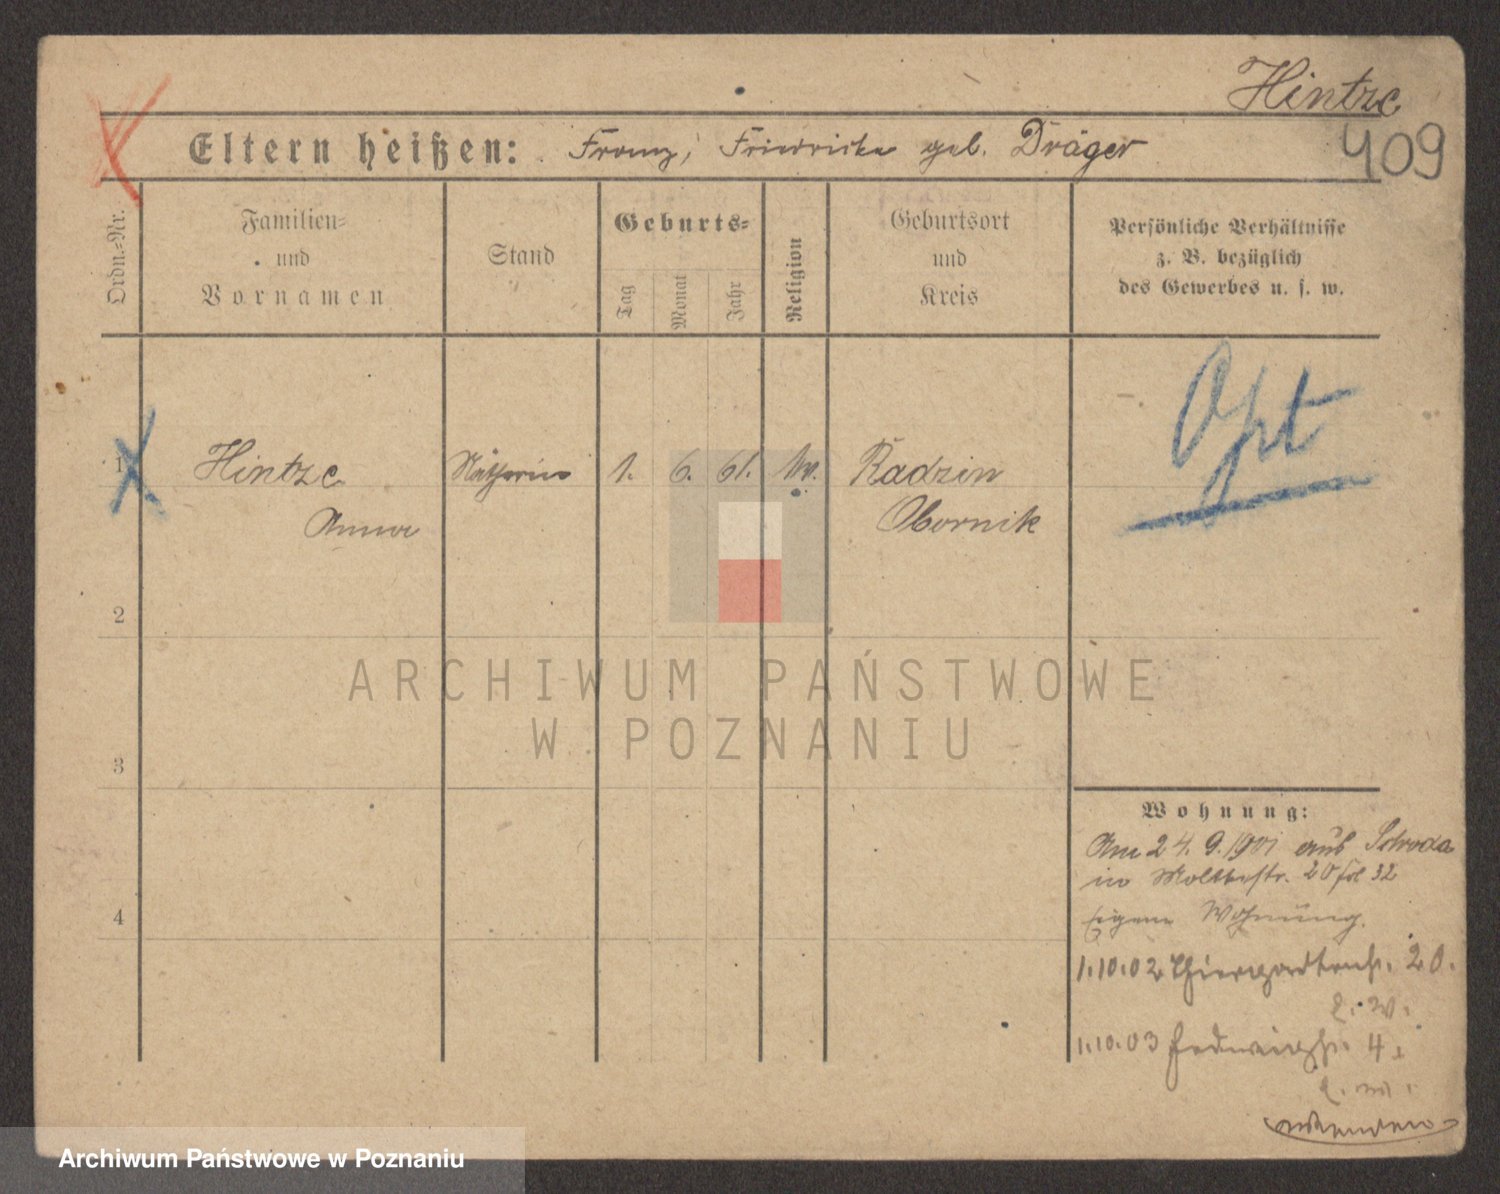 Hintze
409
Eltern heißen: Franz, Friedricke geb. Dräger
Ordn.-Nr.
Familien-
und
Vornamen
Stand
Geburts-
Tag
Monat
Jahr
Religion
Geburtsort
und
Kreis
Persönliche Verhältnisse
z. B. bezüglich
des Gewerbes u. s. w.
Opt
1 Hintze Nätherin 1. 6. 61. Radzin
Anna Obornik
2
3
4
ARCHIWUM PAŃSTWOWE
W POZNANIU
Wohnung:
Am 24. 9. 1901 aus Schroda
in Moltkestr. 20 fol 32
Eigene Wohnung.
1.10.02 Thiergartenstr. 20.
E. W.
1.10.03 Hedwigstr. 4
E. W.
wenden
Archiwum Państwowe w Poznaniu